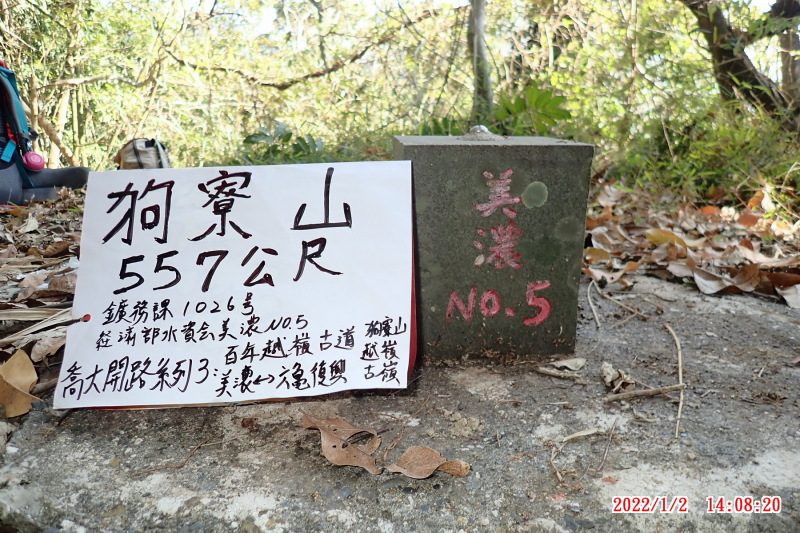 狗寮山
557公尺
鑛務課1026号
經濟部水資会美濃NO.5
百年越嶺古道
狗寮山
越嶺
古嶺
喬大開路系列3:美濃↔六龜復興
美
濃
NO.5
2022/1/2 14:08:20